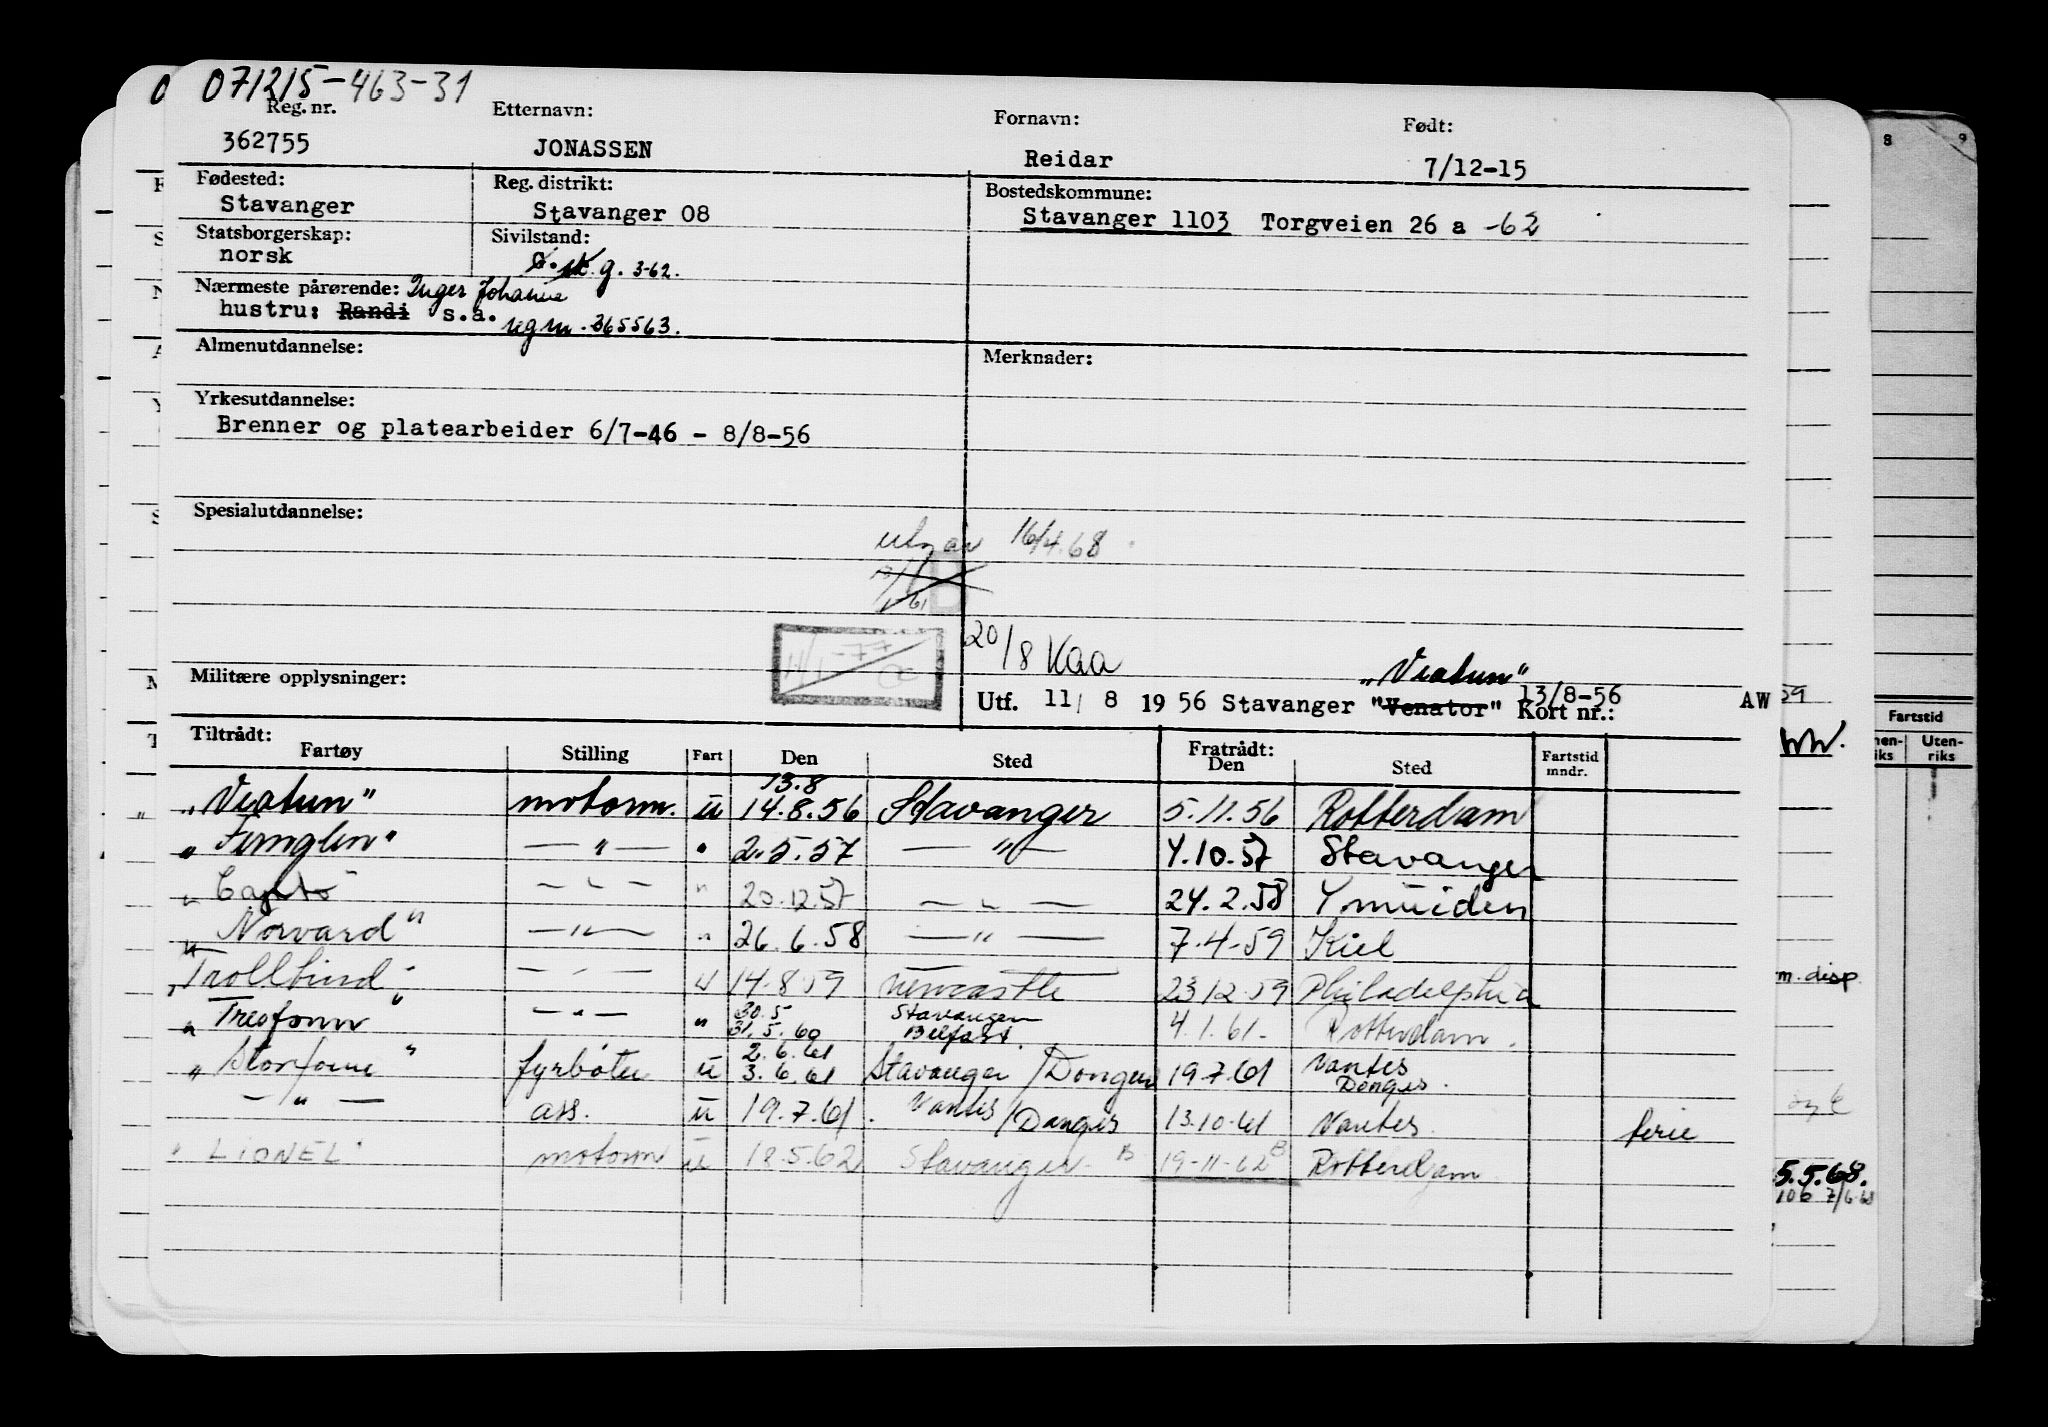 071215-463-31
Reg. nr. Etternavn: Fornavn: Født:
362755 JONASSEN Reidar 7/12-15
Fødested: Reg. distrikt: Bostedskommune:
Stavanger Stavanger 08 Stavanger 1103 Torgveien 26 a -62
Statsborgerskap: Sivilstand:
norsk g. 3-62.
Nærmeste pårørende: Inger Johanne
hustru: Randi s.a. reg nr. 365563.
Almenutdannelse: Merknader:
Yrkesutdannelse:
Brenner og platearbeider 6/7-46 - 8/8-56
Spesialutdannelse:
16/4.68
20/8 Kaa
Militære opplysninger:
"Viatun"
Utf. 11/ 8 1956 Stavanger "Venator" 13/8-56 Kort nr.: AW
Tiltrådt: Fratrådt:
Fartøy Stilling Fart Den Sted Den Sted Fartstid mndr.
13.8
"Viatun" motorm. u 14.8.56 Stavanger 5.11.56 Rotterdam
"Fernglen" — " — " 2.5.57 — " — 4.10.57 Stavanger
" — " — " 20.12.57 — " — 24.2.58 Ymuiden
"Norvard" — " — " 26.6.58 — " — 7.4-59 Kiel
"Trollvind" — " — u 14.8.59 Newcastle 23.12.59 Philadelphia
30.5 Stavanger
"Treofonn" — " — " 31.5.60 Belfast. 4.1.61- Rotterdam.
2.6.61 Nantes
"Storfonn" fyrbøter u 3.6.61 Stavanger / Donges 19.7.61 Donges.
— " — ass. u 19.7.61. Nantes / Donges 13.10.61 Nantes. ferie
"LIONEL" motorm u 18.5.62 Stavanger B 19-11-62 B Rotterdam
8 9
59
Fartstid
Uten-
riks
m. disp
5.5.68.
106 7/6-68